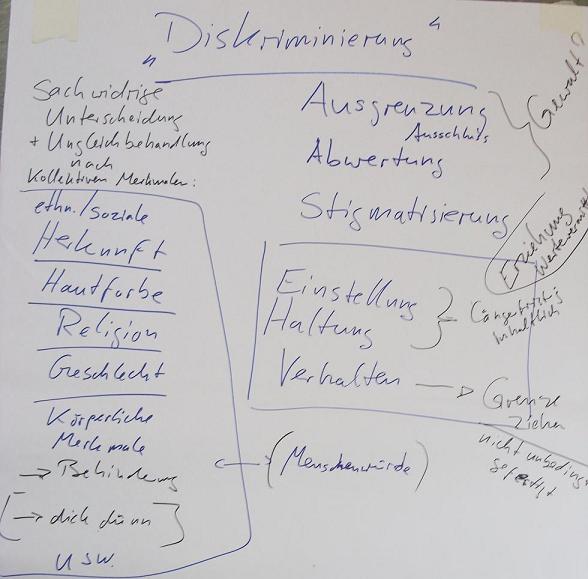 "Diskriminierung"
Sachwidrige
Unterscheidung
+ Ungleichbehandlung
nach
Kollektiven Merkmalen:
ethn./soziale
Herkunft
Hautfarbe
Religion
Geschlecht
Körperliche
Merkmale
→ Behinderung
[→ dick dünn]
usw.
Ausgrenzung
Ausschluss
Abwertung
Stigmatisierung
Gewalt?
Erziehung
Einstellung
Haltung
Längerfristig
Inhaltlich
Verhalten → Grenze
ziehen
nicht unbedingt
gefestigt
↔ (Menschenwürde)